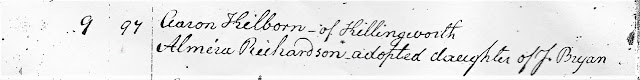 9 97 Aaron Kilborn - of Killingworth
Almira Richardson - adopted daughter of J. Bryan